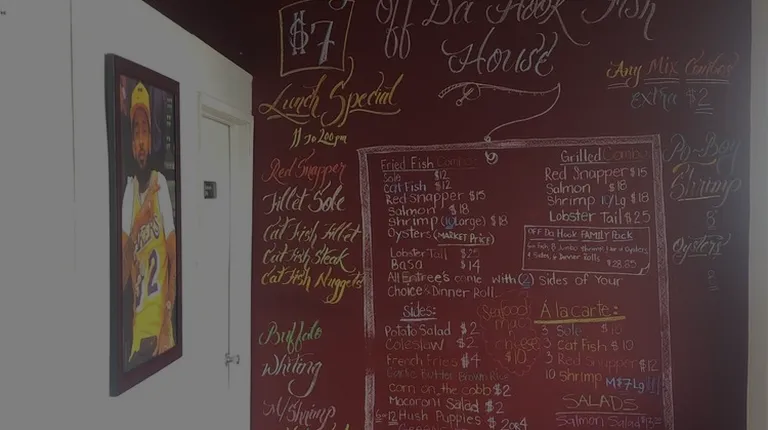 $7
Off Da Hook Fish
House
Lunch Special
11 to 2:00pm
Red Snapper
Fillet Sole
Cat Fish Fillet
Cat Fish Steak
Cat Fish Nuggets
Buffalo
Whiting
M/Shrimp
Any Mix Combos
extra $2
Po-Boy
Shrimp
Oysters
Fried Fish Combos
Sole $12
Cat Fish $12
Red Snapper $15
Salmon $18
Shrimp (10 Large) $18
Oysters (MARKET PRICE)
Lobster Tail $25
Basa $14
All Entree's come with (2) Sides of Your
Choice & Dinner Roll.
Grilled Combo
Red Snapper $15
Salmon $18
Shrimp 10/Lg $18
Lobster Tail $25
OFF Da Hook FAMILY Pack
& Dinner Rolls
Sides:
Potato Salad $2
Coleslaw $2
French Fries $4
Garlic Butter Brown Rice
Corn on the cobb $2
Macaroni Salad $2
Hush Puppies
Seafood
Mac
Cheese
$10
À la carte:
3 Sole $10
3 Cat Fish $10
3 Red Snapper $12
10 Shrimp M$7 Lg
SALADS
Salmon Salad